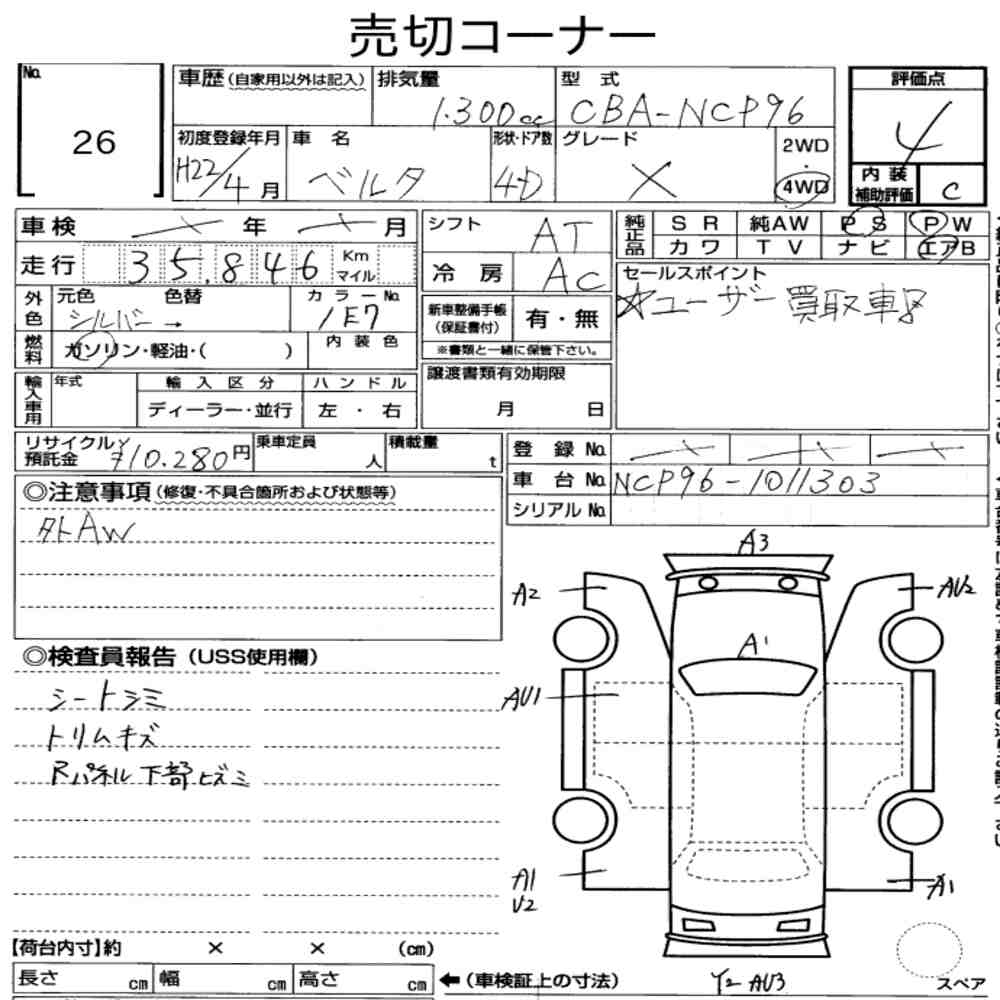 売切コーナー
No.
26
車歴(自家用以外は記入)
排気量
1.300cc
型 式
CBA-NCP96
評価点
4
初度登録年月
H22/4月
車 名
ベルタ
形状・ドア数
4D
グレード
X
2WD
・
4WD
内 装
補助評価
C
車検 年 月
シフト
AT
純正品
SR 純AW PS PW
カワ TV ナビ エアB
走行
35,846
Km
マイル
冷 房
AC
セールスポイント
☆ユーザー買取車
外色
元色 色替
シルバー→
カラーNo.
1E7
新車整備手帳
(保証書付)
有・無
※書類と一緒に保管下さい。
燃料
ガソリン・軽油・( )
内装色
輸入車用
年式
輸入区分
ハンドル
ディーラー・並行
左 ・ 右
譲渡書類有効期限
月 日
リサイクル
預託金
¥10.280円
乗車定員
人
積載量
t
登 録 No.
車 台 No.
NCP96-1011303
シリアル No.
◎注意事項(修復・不具合箇所および状態等)
外AW
◎検査員報告(USS使用欄)
シートシミ
トリムキズ
Rパネル下部ヒズミ
A3
A2
AU2
A1
AU1
A1
U2
A1
【荷台内寸】約 × × (cm)
長さ cm 幅 cm 高さ cm
←(車検証上の寸法)
Y2 AU3
スペア